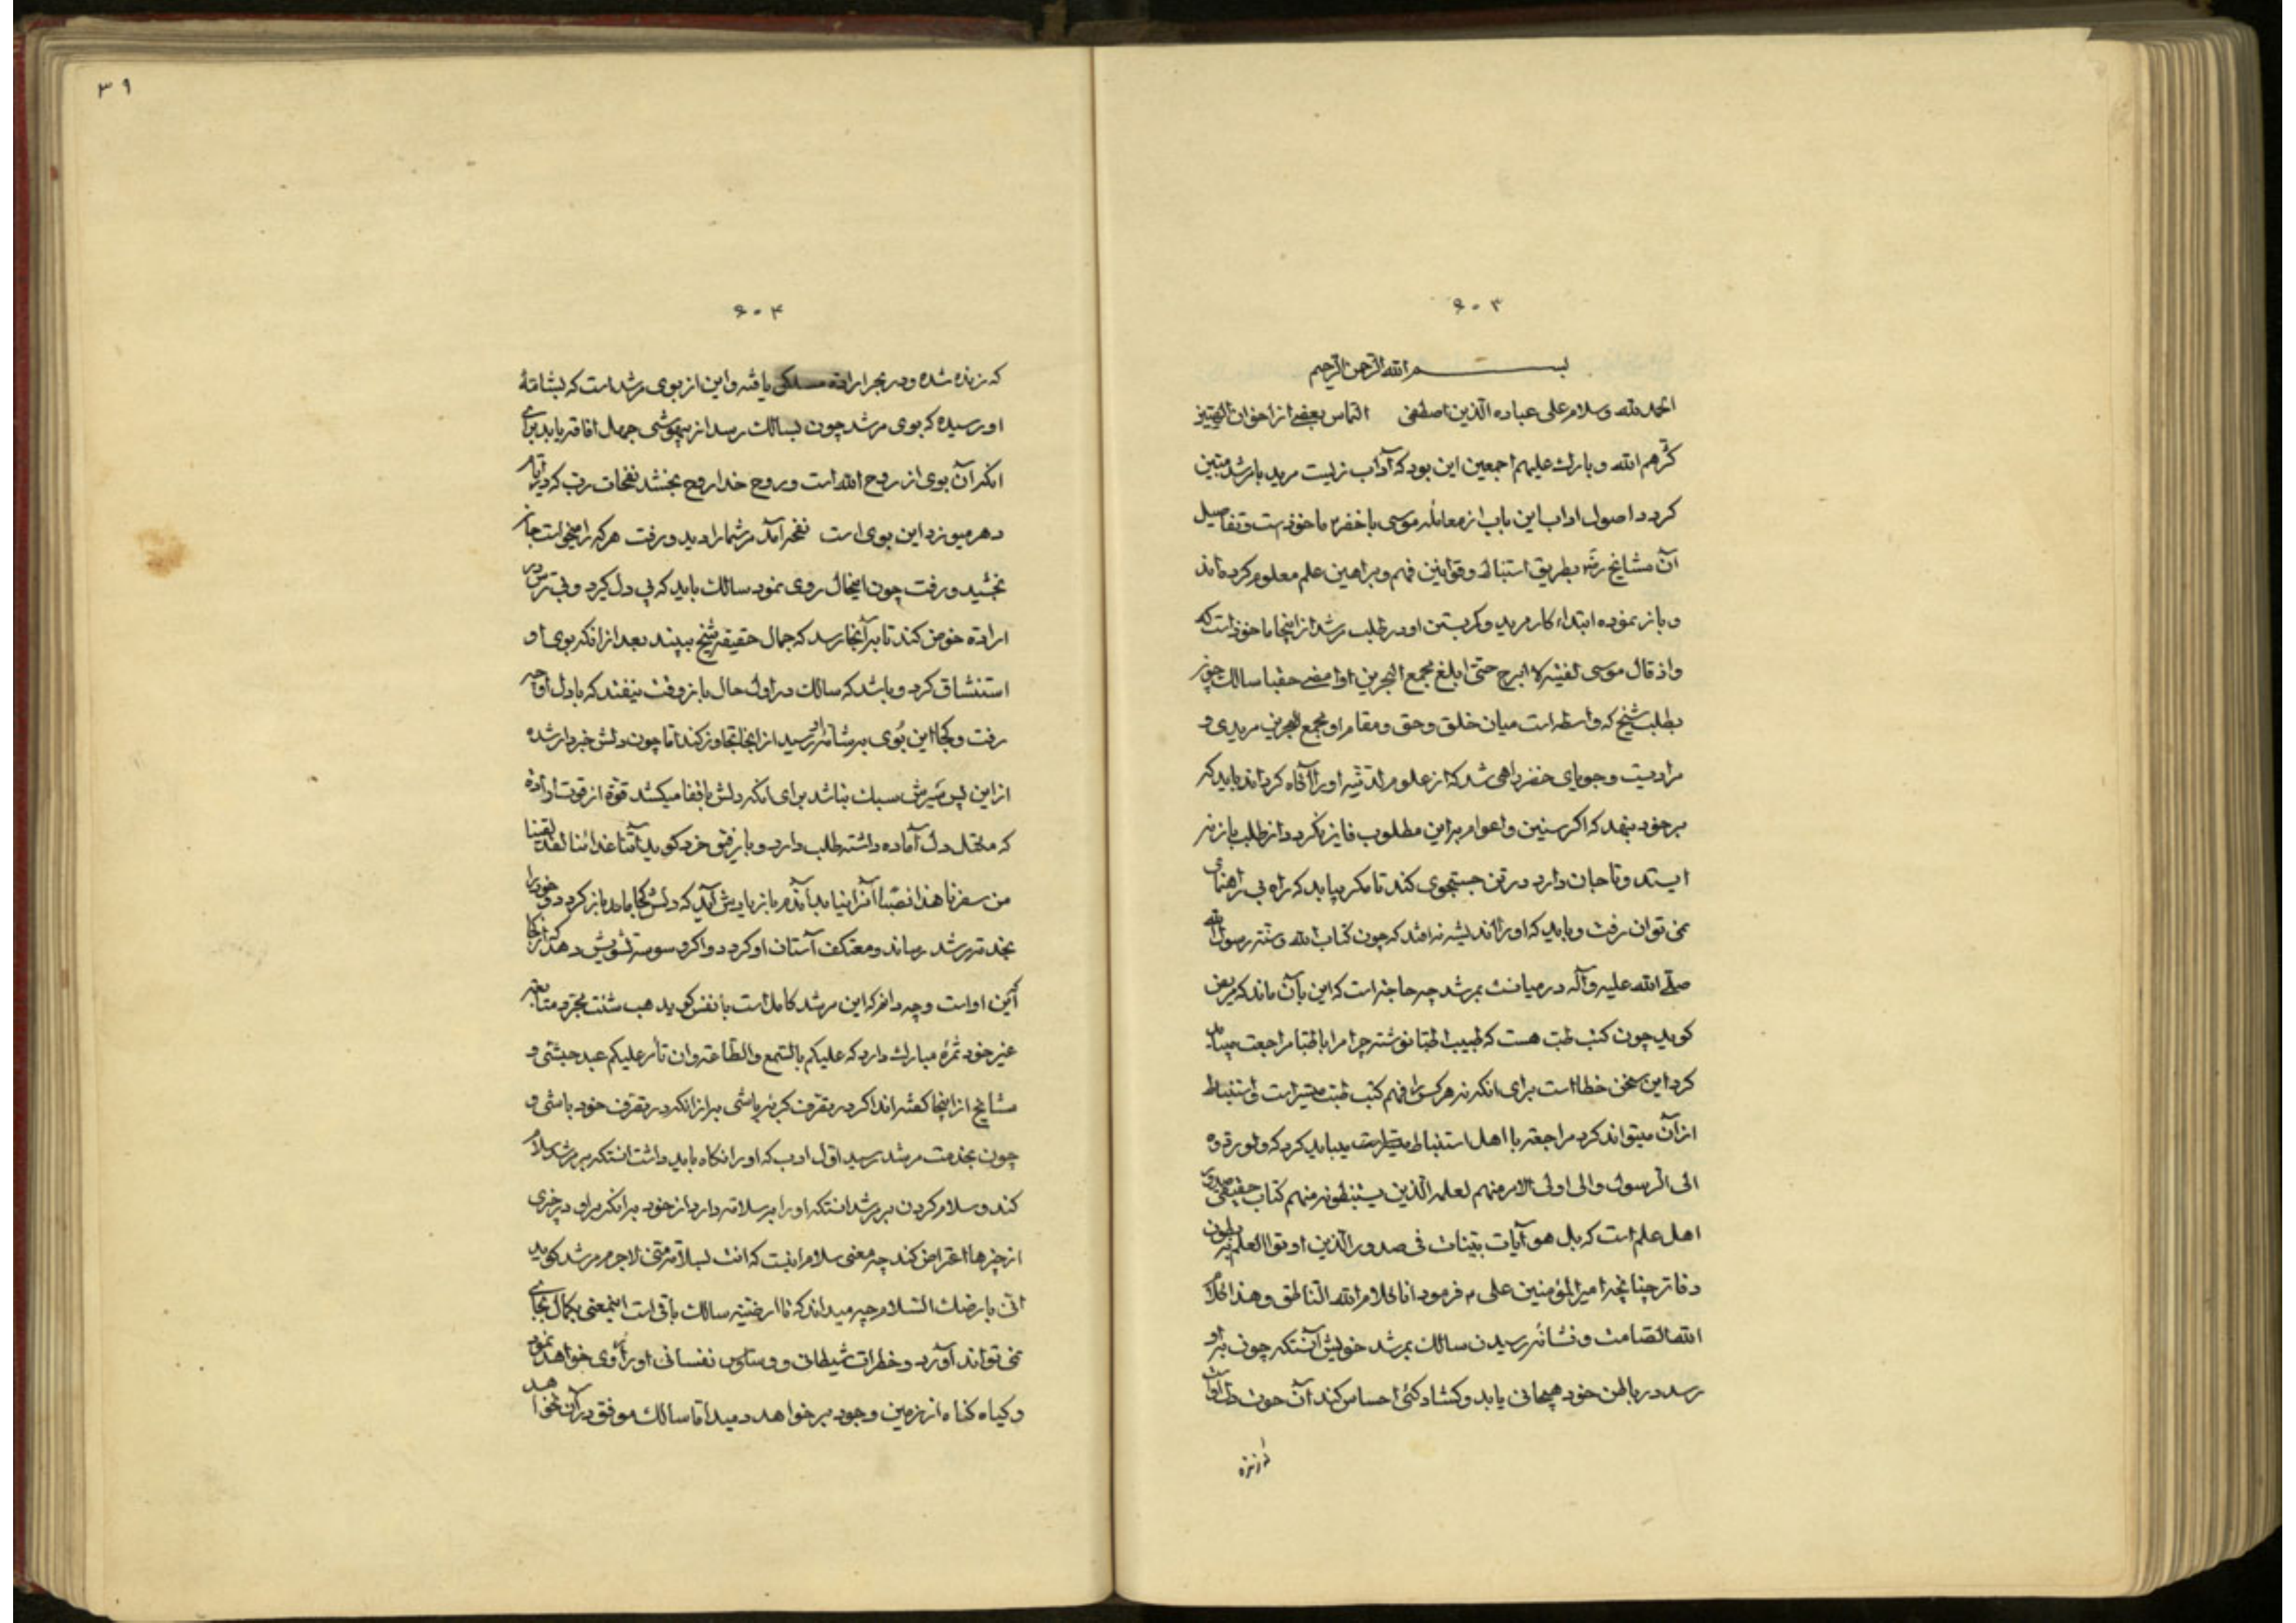 ۶۰۳
بسم الله الرحمن الرحیم
الحمد لله وسلام علی عباده الذین اصطفی التماس بعضی از اخوان
کثرهم الله و بارک علیهم اجمعین این بود که آداب زیست مرید با مرشد مبین
کردد اصول اداب این باب از معامله موسی با خضر ماخوذست و تفاصیل
آن مشایخ بطریق استنباط و قوانین فهم و براهین علم معلوم کرده اند
و باز نموده ابتداء کار مرید و کمر بستن او در طلب مرشد از اینجا ماخوذ است که
واذ قال موسی لفتیه لا ابرح حتی ابلغ مجمع البحرین او امضی حقبا سالک چون
بطلب شیخ که واسطه است میان خلق و حق و مقام او مجمع البحرین مریدی و
مرادیت و جویای خضر راهی شد که از علوم لدنیه او را آگاه کرداند باید که
بر خود بنهد که اکر سنین و اعوام بر این مطلوب فایز نکردد از طلب باز نه
ایستد و تا جان دارد در تن جستجوی کند تا مکر بیابد که راه بی راهنمای
نمی توان رفت و باید که او را اندیشه نه افتد که چون کتاب الله و سنة رسول الله
صلی الله علیه وآله در میانست بمرشد چه حاجة است که این بآن ماند که مریض
کوید چون کتب طب هست که طبیب اطبا نوشته چرا مرا باطبا مراجعت میباید
کرد این سخن خطا است برای انکه نه هر کس را فهم کتب طب میسر است و استنباط
از آن میتواند کرد مراجعة با اهل استنباط میباید کرد که ولو ردوه
الی الرسول والی اولی الامر منهم لعلمه الذین یستنبطونه منهم کتاب حقیقی صدور
اهل علم است که بل هو آیات بینات فی صدور الذین اوتوا العلم نه بطون
دفاتر چنانچه امیر المؤمنین علی م فرمود انا کلام الله الناطق وهذا کلام
الله الصامت و نشانه رسیدن سالک بمرشد خویش آنستکه چون به او
رسد در باطن خود هیجانی یابد و کشادکئی احساس کند آن حوت دل او است
۳۹
۶۰۴
که زنده شده و در بحر ارادة یافته و این از بوی مرشد است که بشامهٔ
او رسیده که بوی مرشد چون بسالک رسد از بیهوشی جهل افاقه یابد برای
انکه آن بوی از روح الله است و بروح خدا روح بخشد نفحات رب که در ایام
دهر میوزد این بوی است نفحه آمد مر شما را دید و رفت هر که را میخواست جان
بخشید و رفت چون اینحال روی نمود سالک باید که پی دل کیرد و در
ارادة خوض کند تا بر آنجا رسد که جمال حقیقة شیخ ببیند بعد از انکه بوی او
استنشاق کرد و باشد که سالک در اول حال باز وقت نیفتد که با دل او چه
رفت و کجا این بوی بر شامه او رسید از اینجا تجاوز کند اما چون دلش خبردار شده
از این پس سیرش سبک نباشد برای انکه دلش باقفا میکشد قوة از قوت ارادة
که دل آماده داشته طلب دارد و با رفیق خرد کوید آتنا غدائنا لقد لقینا
من سفرنا هذا نصبا آنرا نیابد باز یادش آید که دلش کجا باز کردد و خود را
بخدمة مرشد رساند و معتکف آستان او کردد و اکر وسوسه تشویش دهد که از کجا
که این اوست و چه دانم که این مرشد کامل است با نفس کوید هب شئت مجرد متابعة
غیر خود ثمرهٔ مبارک دارد که علیکم بالسمع والطاعة وان تأمر علیکم عبد حبشی و
مشایخ از اینجا کفته اند اکر در تصرف کربه باشی به از انکه در تصرف خود باشی و
چون بخدمت مرشد رسید اول ادب که او را نکاه باید داشت انستکه بر مرشد سلام
کند و سلام کردن بر مرشد انستکه او را بر سلامة دارد از خود بر انکه بر او در چیزی
از چیزها اعتراض کند چه معنی سلام اینست که انت بسلامة منی لاجرم مرشد کوید
انی بارضک السلام چه میداند که تا ارضیة سالک باقی است اینمعنی بکمال بجای
نمی تواند آورد و خطرات شیطان و وساوس نفسانی او را روی خواهد نمود
و کیاه کناه از زمین وجود بر خواهد دمید اما سالک موفق در آن نخواهد